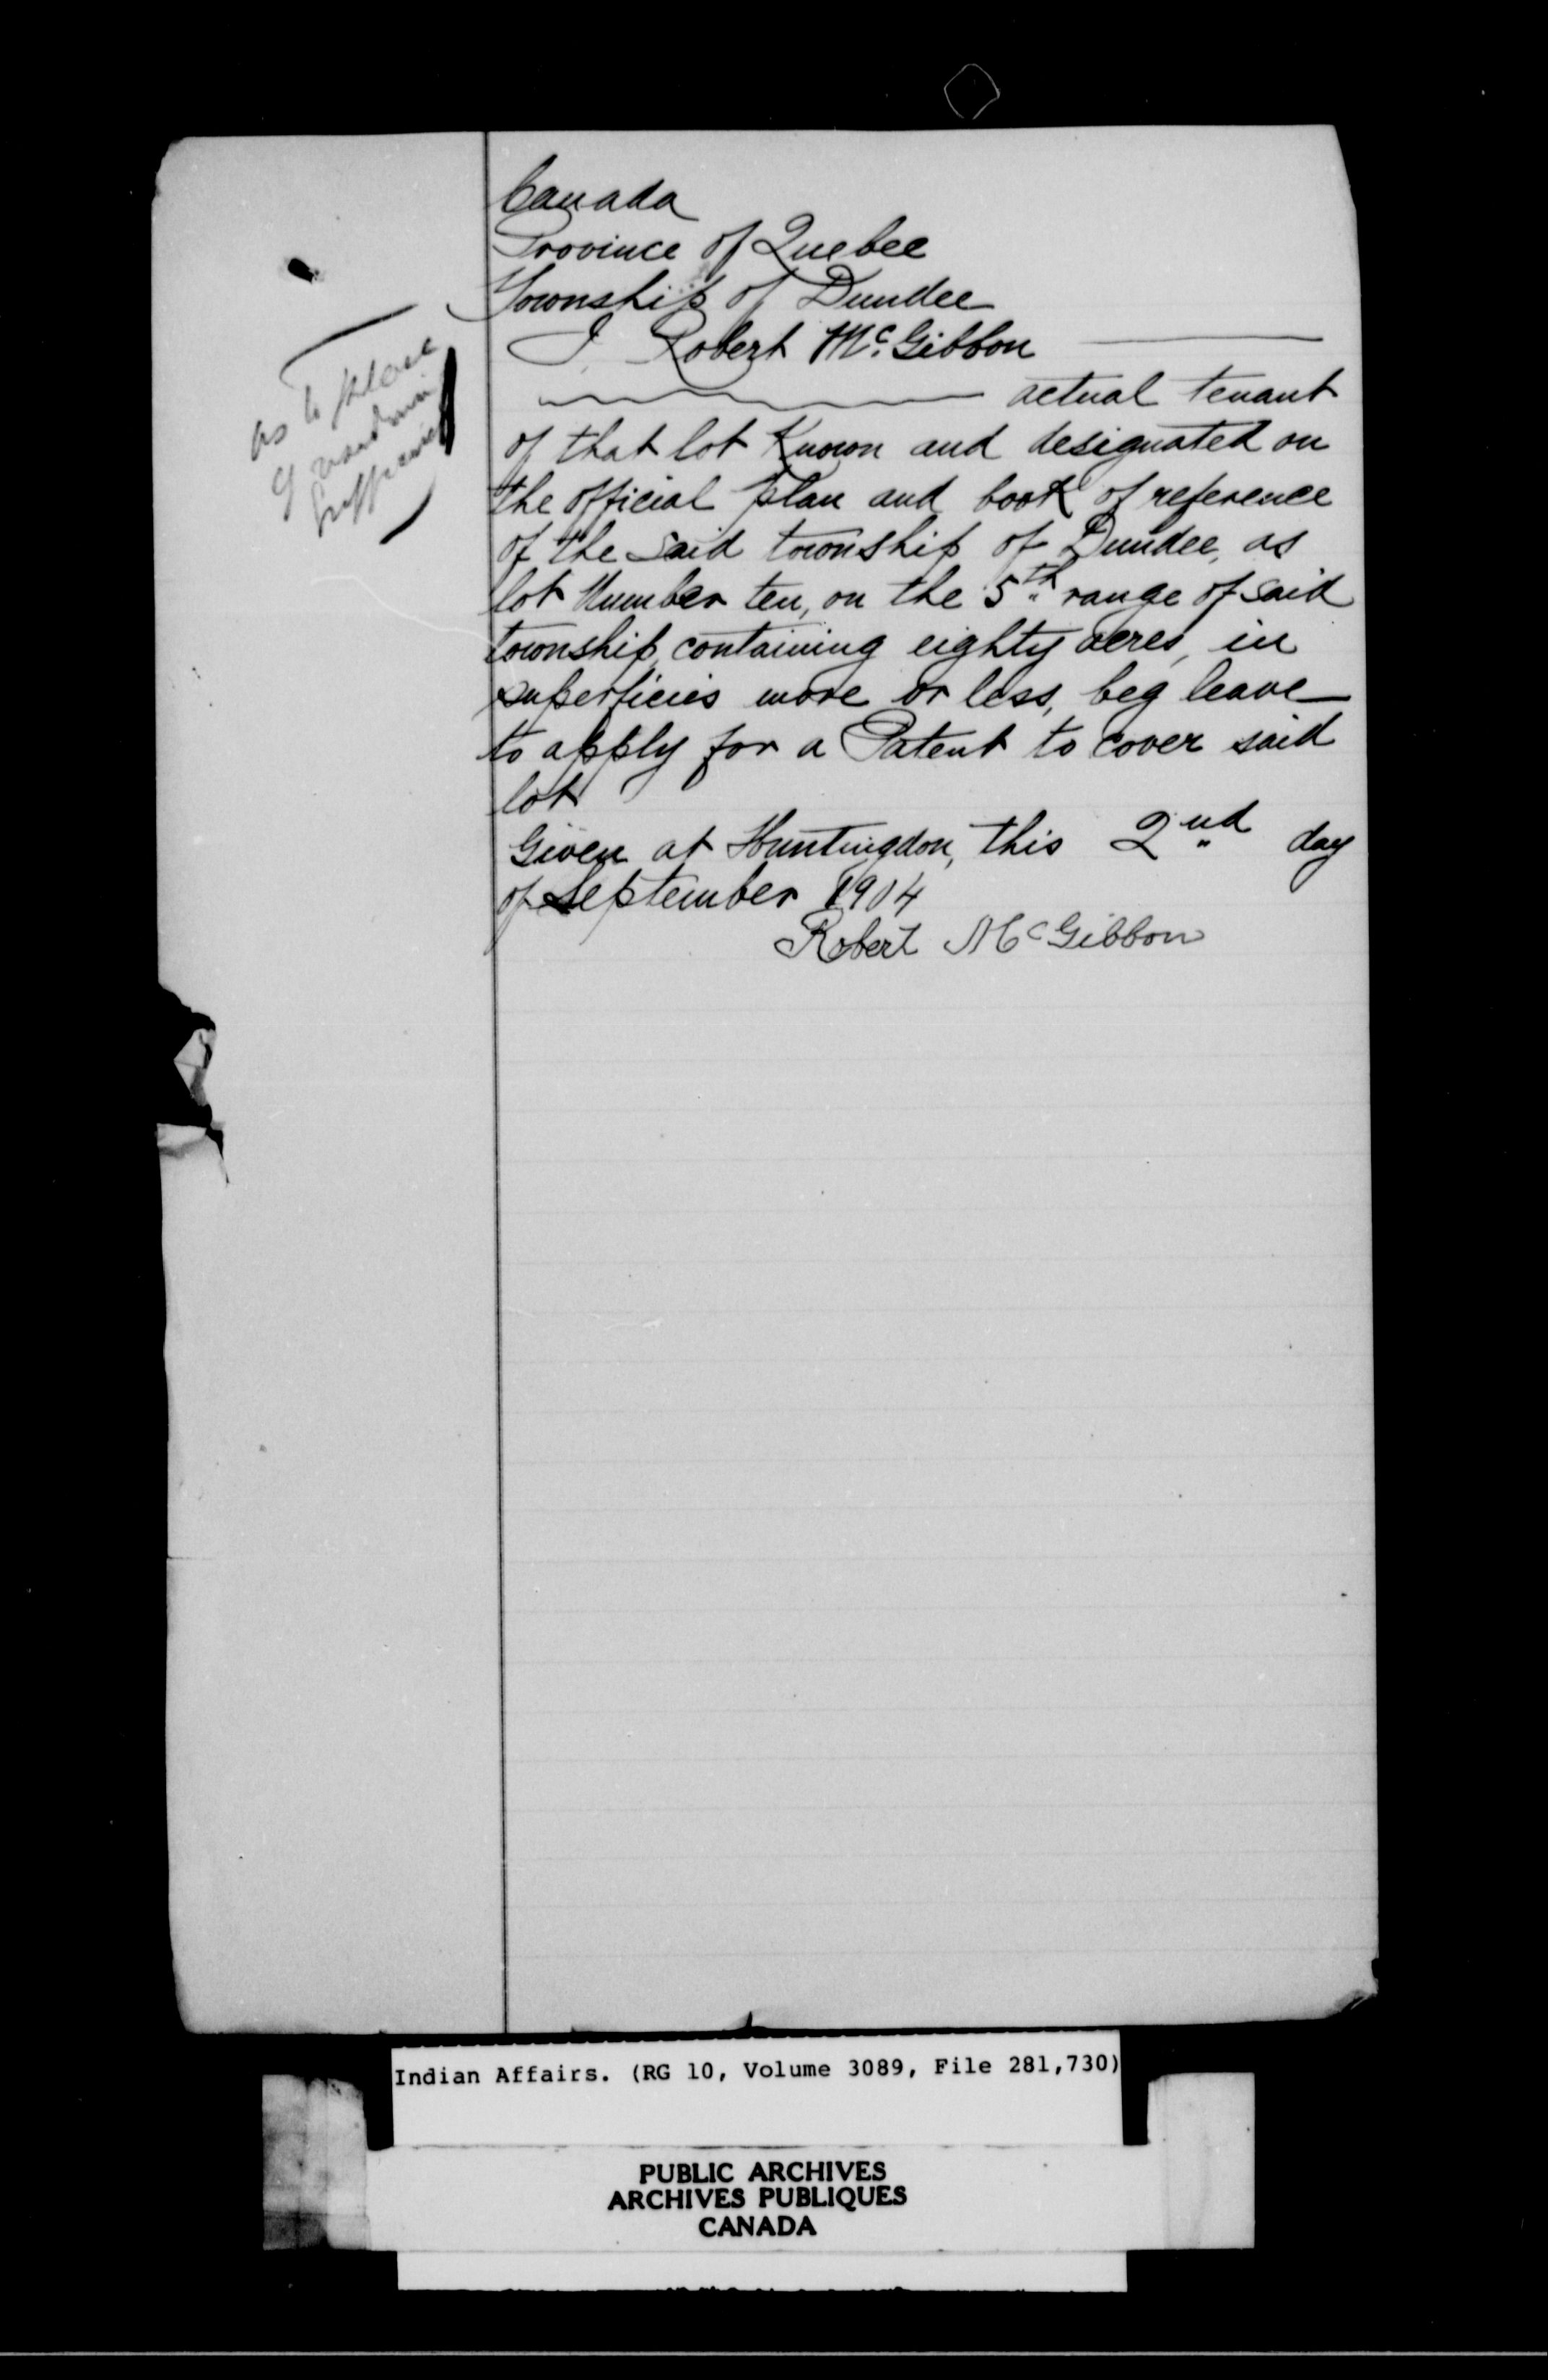 Canada
Province of Quebec
Township of Dundee
I, Robert Mc. Gibbon
actual tenant
of that lot Known and designated on
the official plan and book of reference
of the said township of Dundee, as
lot Number ten, on the 5th range of said
township, containing eighty acres, in
superficies more or less, beg leave
to apply for a Patent to cover said
lot
Given at Huntingdon, this 2nd day
of September 1904
Robert McGibbon
as to place
Indian Affairs. (RG 10, Volume 3089, File 281,730)
PUBLIC ARCHIVES
ARCHIVES PUBLIQUES
CANADA